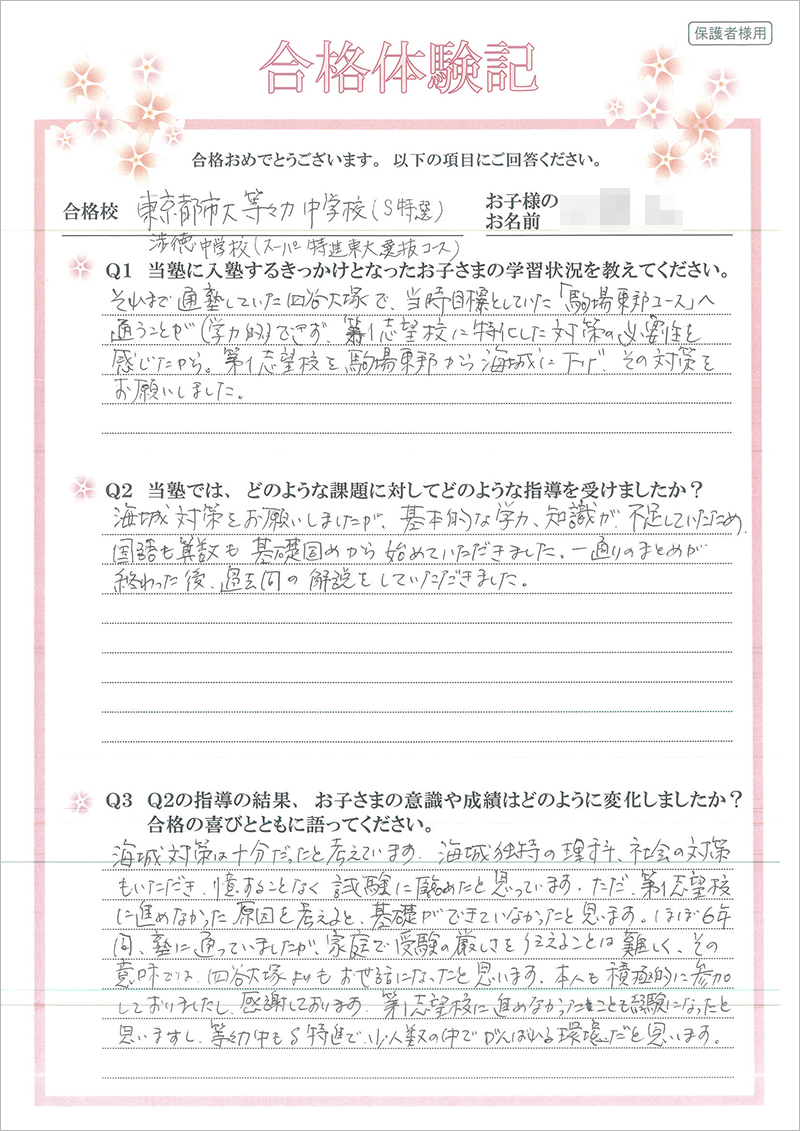 保護者様用
合格体験記
合格おめでとうございます。以下の項目にご回答ください。
合格校 東京都市大等々力中学校(S特選)
お子様の
お名前
渋徳中学校(スーパー特進東大選抜コース)
Q1 当塾に入塾するきっかけとなったお子さまの学習状況を教えてください。
それまで通塾していた四谷大塚で、当時目標としていた「駒場東邦コース」へ
通うことが(学力的)できず、第1志望校に特化した対策の必要性を
感じたから。第1志望校を駒場東邦から海城に下げ、その対策を
お願いしました。
Q2 当塾では、どのような課題に対してどのような指導を受けましたか？
海城対策をお願いしましたが、基本的な学力、知識が不足していたため、
国語も算数も基礎固めから始めていただきました。一通りのまとめが
終わった後、過去問の解説をしていただきました。
Q3 Q2の指導の結果、お子さまの意識や成績はどのように変化しましたか？
合格の喜びとともに語ってください。
海城対策は十分だったと考えています。海城独特の理科、社会の対策
もいただき、憶することなく試験に臨めたと思っています。ただ、第1志望校
に進めなかった原因を考えると、基礎ができていなかったと思います。ほぼ6年
間、塾に通っていましたが、家庭で受験の厳しさを伝えることは難しく、その
意味では、四谷大塚よりもお世話になったと思います。本人も積極的に参加
しておりましたし、感謝しております。第1志望校に進めなかったことも経験になったと
思いますし、等々力中もS特進で、少人数の中でがんばれる環境だと思います。